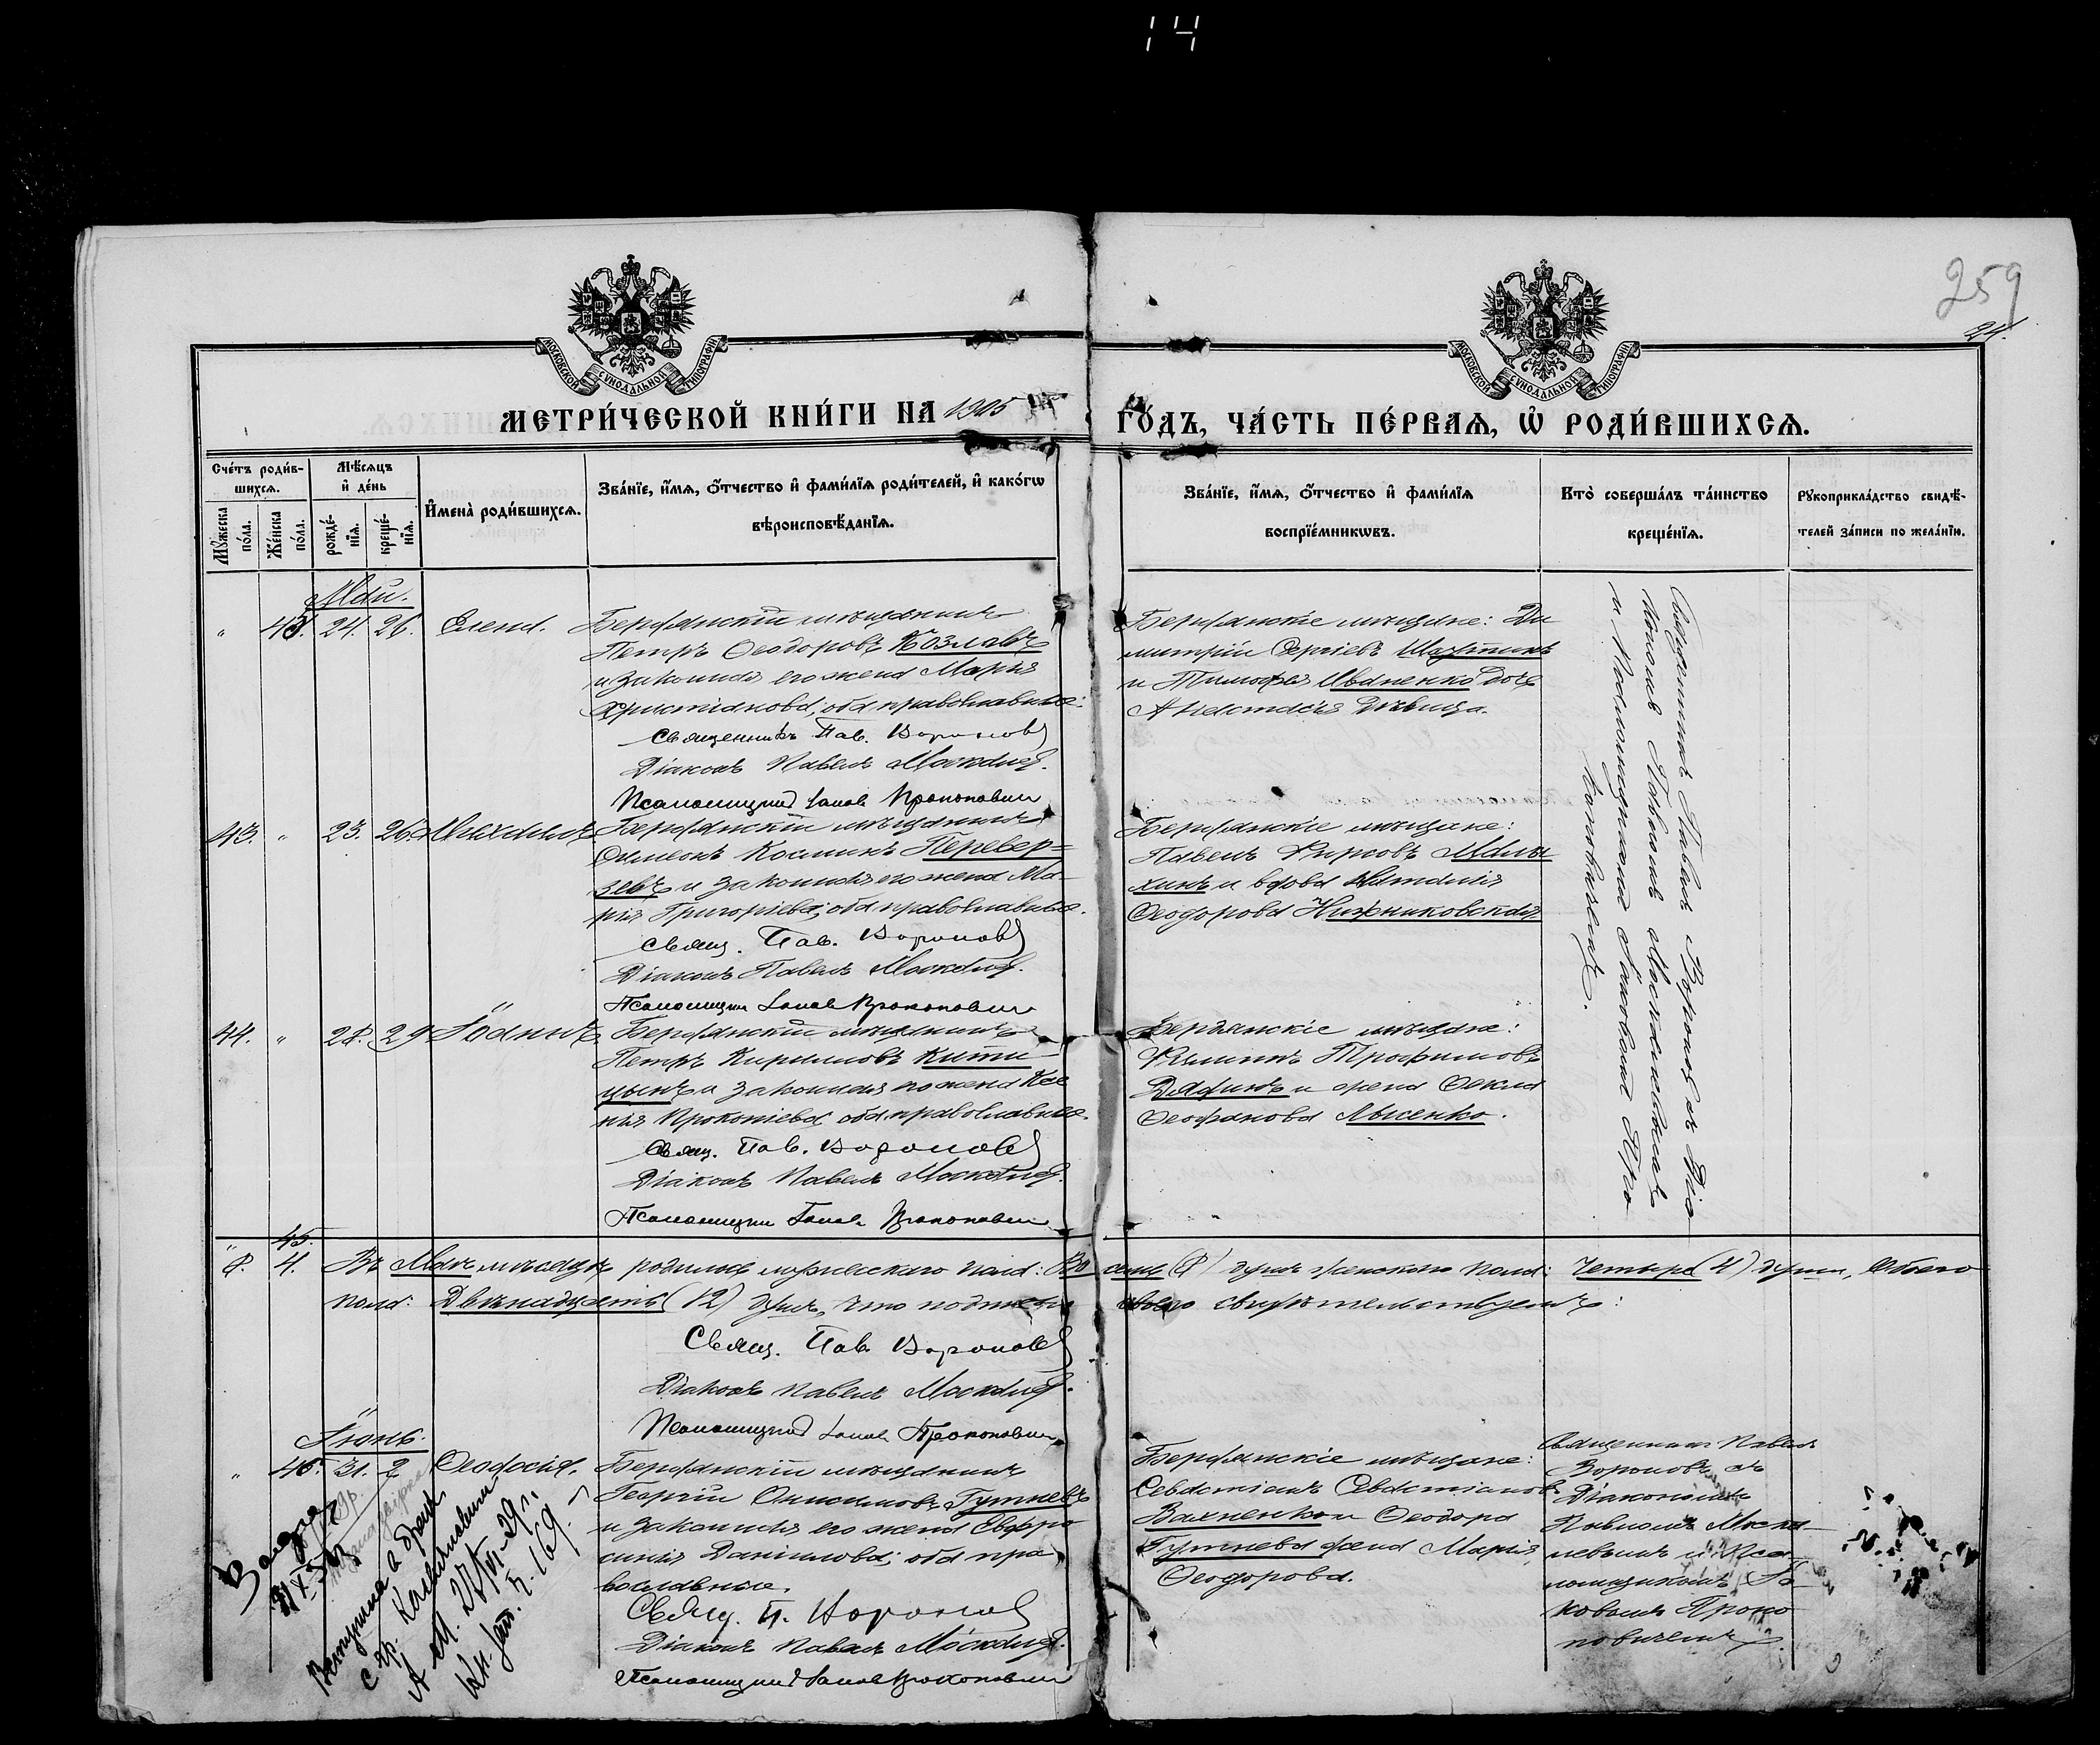 14
259
24.
МОСКОВСКОЙ СУНОДАЛЬНОЙ ТИПОГРАФІИ
МОСКОВСКОЙ СУНОДАЛЬНОЙ ТИПОГРАФІИ
МЕТРИ́ЧЕСКОЙ КНИ́ГИ НА 1905 ГО́ДЪ, ЧА́СТЬ ПЕ́РВАѦ, Ѡ҆ РОДИ́ВШИХСѦ.
Сче́тъ роди́в-
шихсѧ.
Мѣ́сѧцъ
и҆ де́нь
Мꙋ́жеска по́ла.
Же́нска по́ла.
рожде́-нїѧ.
креще́-нїѧ.
И҆мена̀ роди́вшихсѧ.
Зва́нїе, и҆́мѧ, ѻ҆́тчество и҆ фами́лїѧ роди́телей, и҆ како́гѡ
вѣроисповѣ́данїѧ.
Зва́нїе, и҆́мѧ, ѻ҆́тчество и҆ фами́лїѧ
воспрїе́мникѡвъ.
Кто̀ соверша́лъ та́инство
креще́нїѧ.
Рꙋкоприкла́дство свидѣ́-
телей за́писи по жела́нїю.
Май.
" 24. 26. Елена. Бердянскій мѣщанинъ
Петръ Ѳеодоровъ Козловъ
и законная его жена Марія
Христіанова, оба православные.
Священникъ Пав. Вороновъ
Діаконъ Павелъ Москалев.
Псаломщикъ Іаков Прокопович
Бердянскіе мѣщане: Ди
митрій Сергіевъ
и Тимоѳея Иваненко дочь
Анастасія дѣвица.
Священникъ Павелъ Вороновъ съ Діа
кономъ Павломъ Москалевымъ
и Псаломщикомъ Іаковомъ Про
коповичемъ.
43. " 23. 26. Михаилъ. Бердянскій мѣщанинъ
Симеонъ Косминъ Перевер=
зевъ и законная его жена Ма-
рія Григоріева, оба православные.
Свящ. Пав. Вороновъ
Діаконъ Павелъ Москалев.
Псаломщик Іаков Прокопович
Бердянскіе мѣщане:
Павелъ Фирсовъ
и вдова Наталія
Ѳеодорова Нижниковская
44. " 28. 29 Іоаннъ Бердянскій мѣщанинъ
Петръ Кирилловъ Кити
цынъ и законная его жена Ксе
нія Прокопіева, оба православные.
Свящ. Пав. Вороновъ
Діаконъ Павелъ Москалев.
Псаломщик Іаков Прокопович
Бердянскіе мѣщане:
Филиппъ Трофимовъ
и жена Ѳекла
Ѳеофанова Лысенко.
" 45.
8. 4. Въ Маѣ мѣсяцѣ родилось мужескаго пола: Во семь (8) душъ женскаго пола: Четыре (4) души, Обоего
пола: Двѣнадцать (12) душъ, что подписью своею свидѣтельствуемъ:
Свящ. Пав. Вороновъ
Діаконъ Павелъ Москалев.
Псаломщикъ Іаков Прокопович
Іюнь.
" 46. 31. 2 Ѳеодосія. Бердянскій мѣщанинъ
Георгій Онисимовъ Гутневъ
и законная его жена Евфро
синія Даніилова, оба пра
вославные.
Свящ. П. Вороновъ
Діаконъ Павелъ Москалев.
Псаломщикъ Іаков Прокопович
Бердянскіе мѣщане:
Севастіанъ Севастіановъ
Вахненко и Ѳеодора
Гутнева жена Марія
Ѳеодорова.
Священникъ Павелъ
Вороновъ съ
Діакономъ
Павломъ Моска-
левымъ и Псал-
омщикомъ Іа
ковомъ Проко
повичемъ
Вступила в брак
с гр.